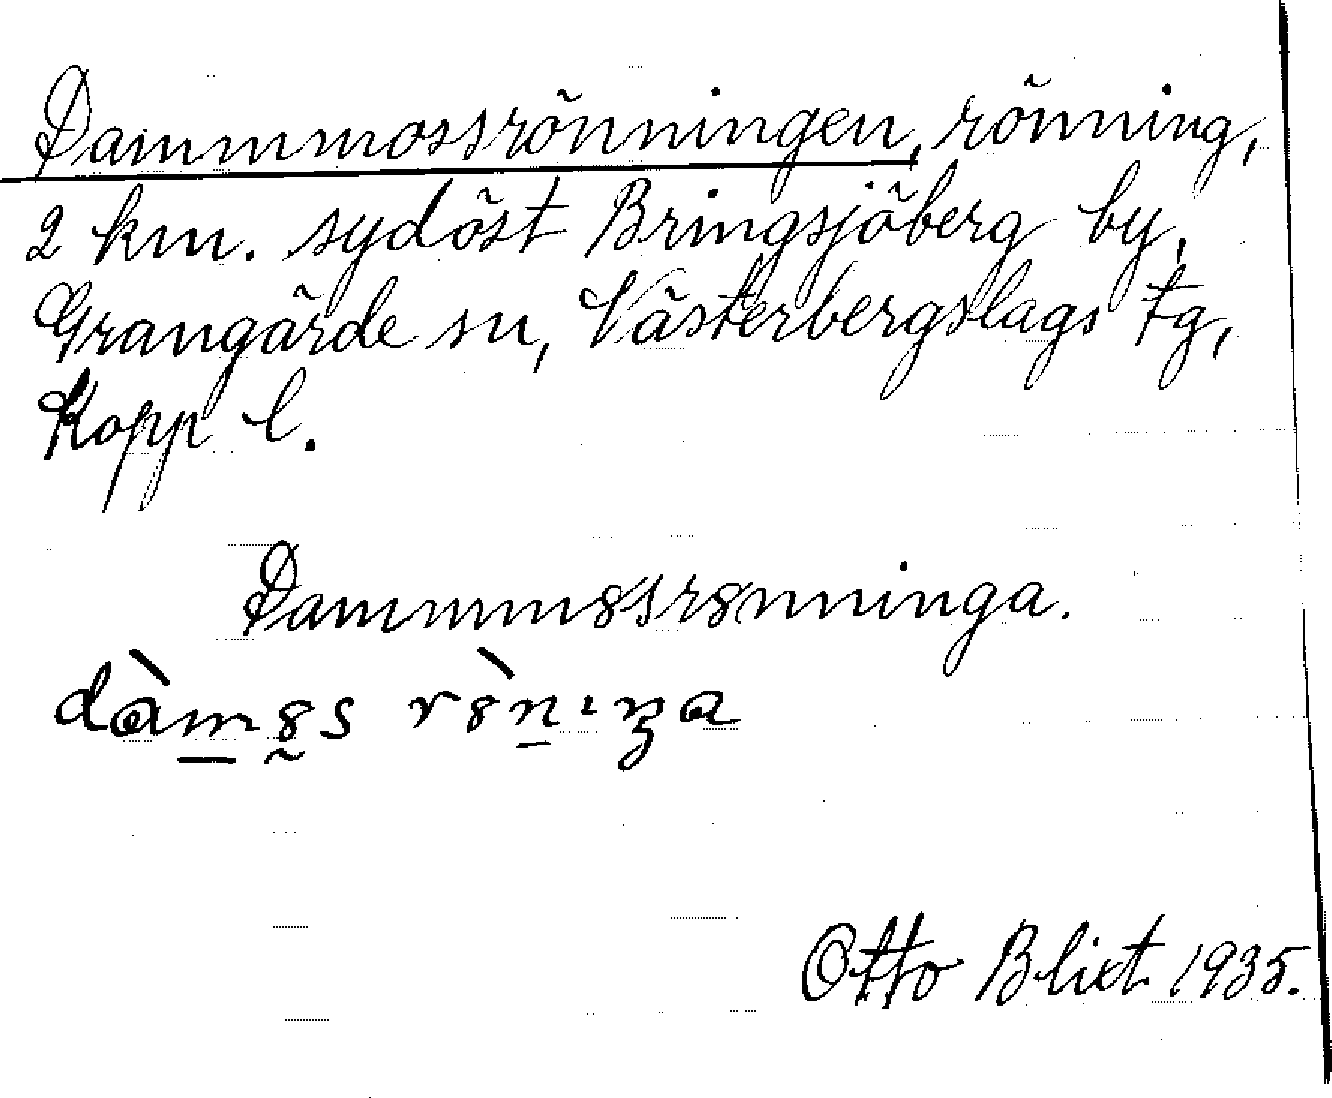 Dammmossrönningen, rönning,
2 km. sydöst Bringsjöberg by,
Grangärde sn, Västerbergslags tg,
Kopp l.
Dammm8ssr8nninga.
Otto Blixt 1935.